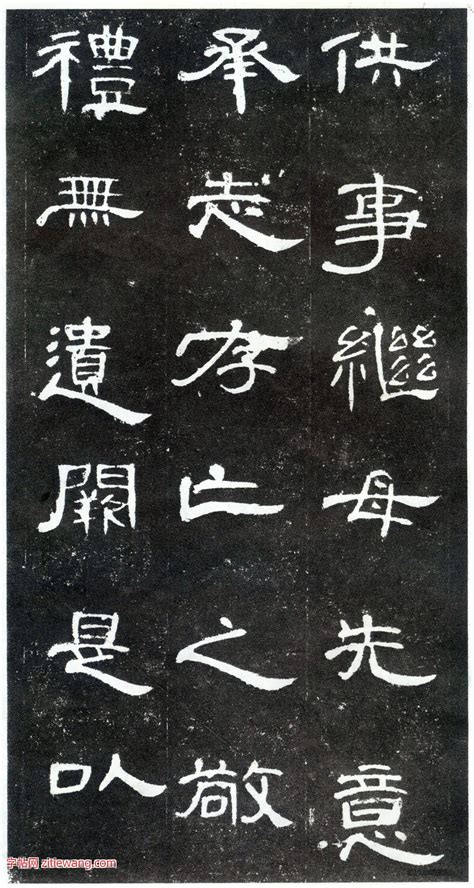 供事繼母先意
承志存亡之敬
禮無遺闕是以
字帖网 zitiewang.com